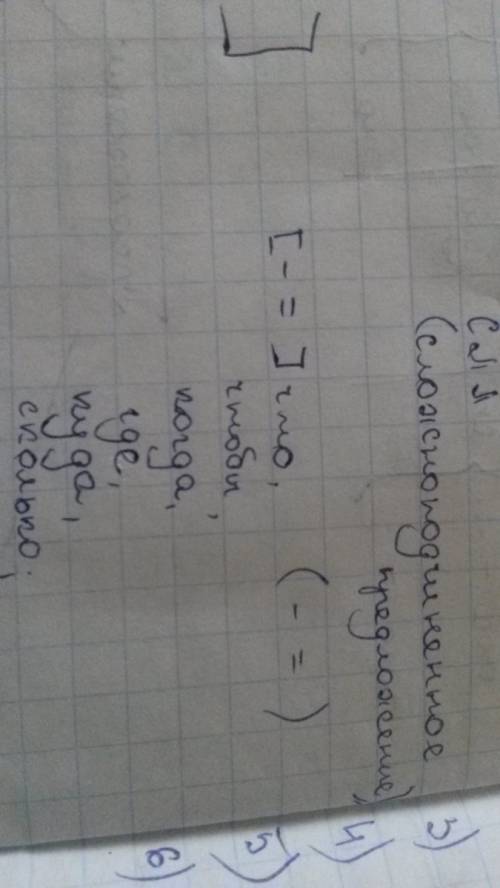 СПП
(сложноподчиненное
предложение)
[ - = ] что, ( - = )
чтобы,
когда,
где,
куда,
сколько.
3)
4)
5)
6)